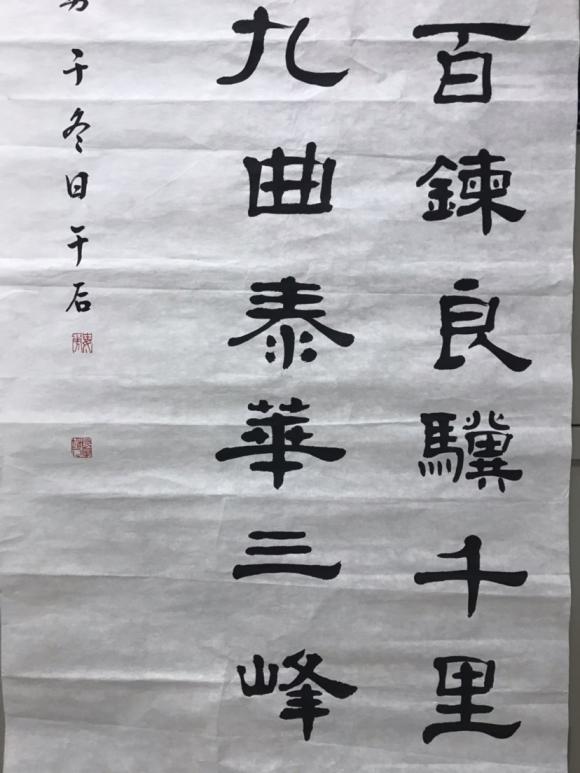 百鍊良驥千里
九曲泰華三峰
于冬日午石